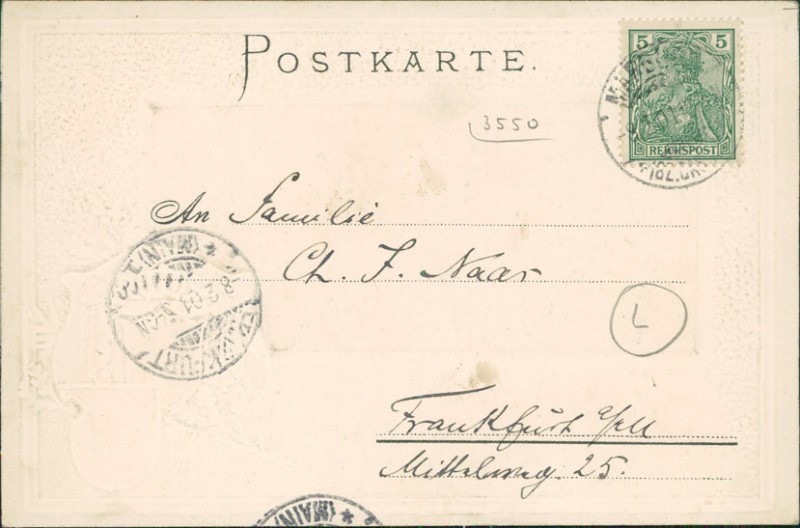 POSTKARTE.
5 5
REICHSPOST
3550
An Familie
Ch. F. Naas
L
Frankfurt a/M
Mittelweg 25.
FRANKFURT
(MAIN) 1
(MAIN)